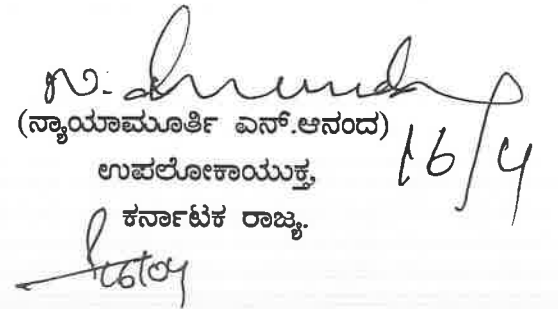 (ನ್ಯಾಯಾಮೂರ್ತಿ ಎನ್.ಆನಂದ)
16/4
ಉಪಲೋಕಾಯುಕ್ತ,
ಕರ್ನಾಟಕ ರಾಜ್ಯ.
16/04